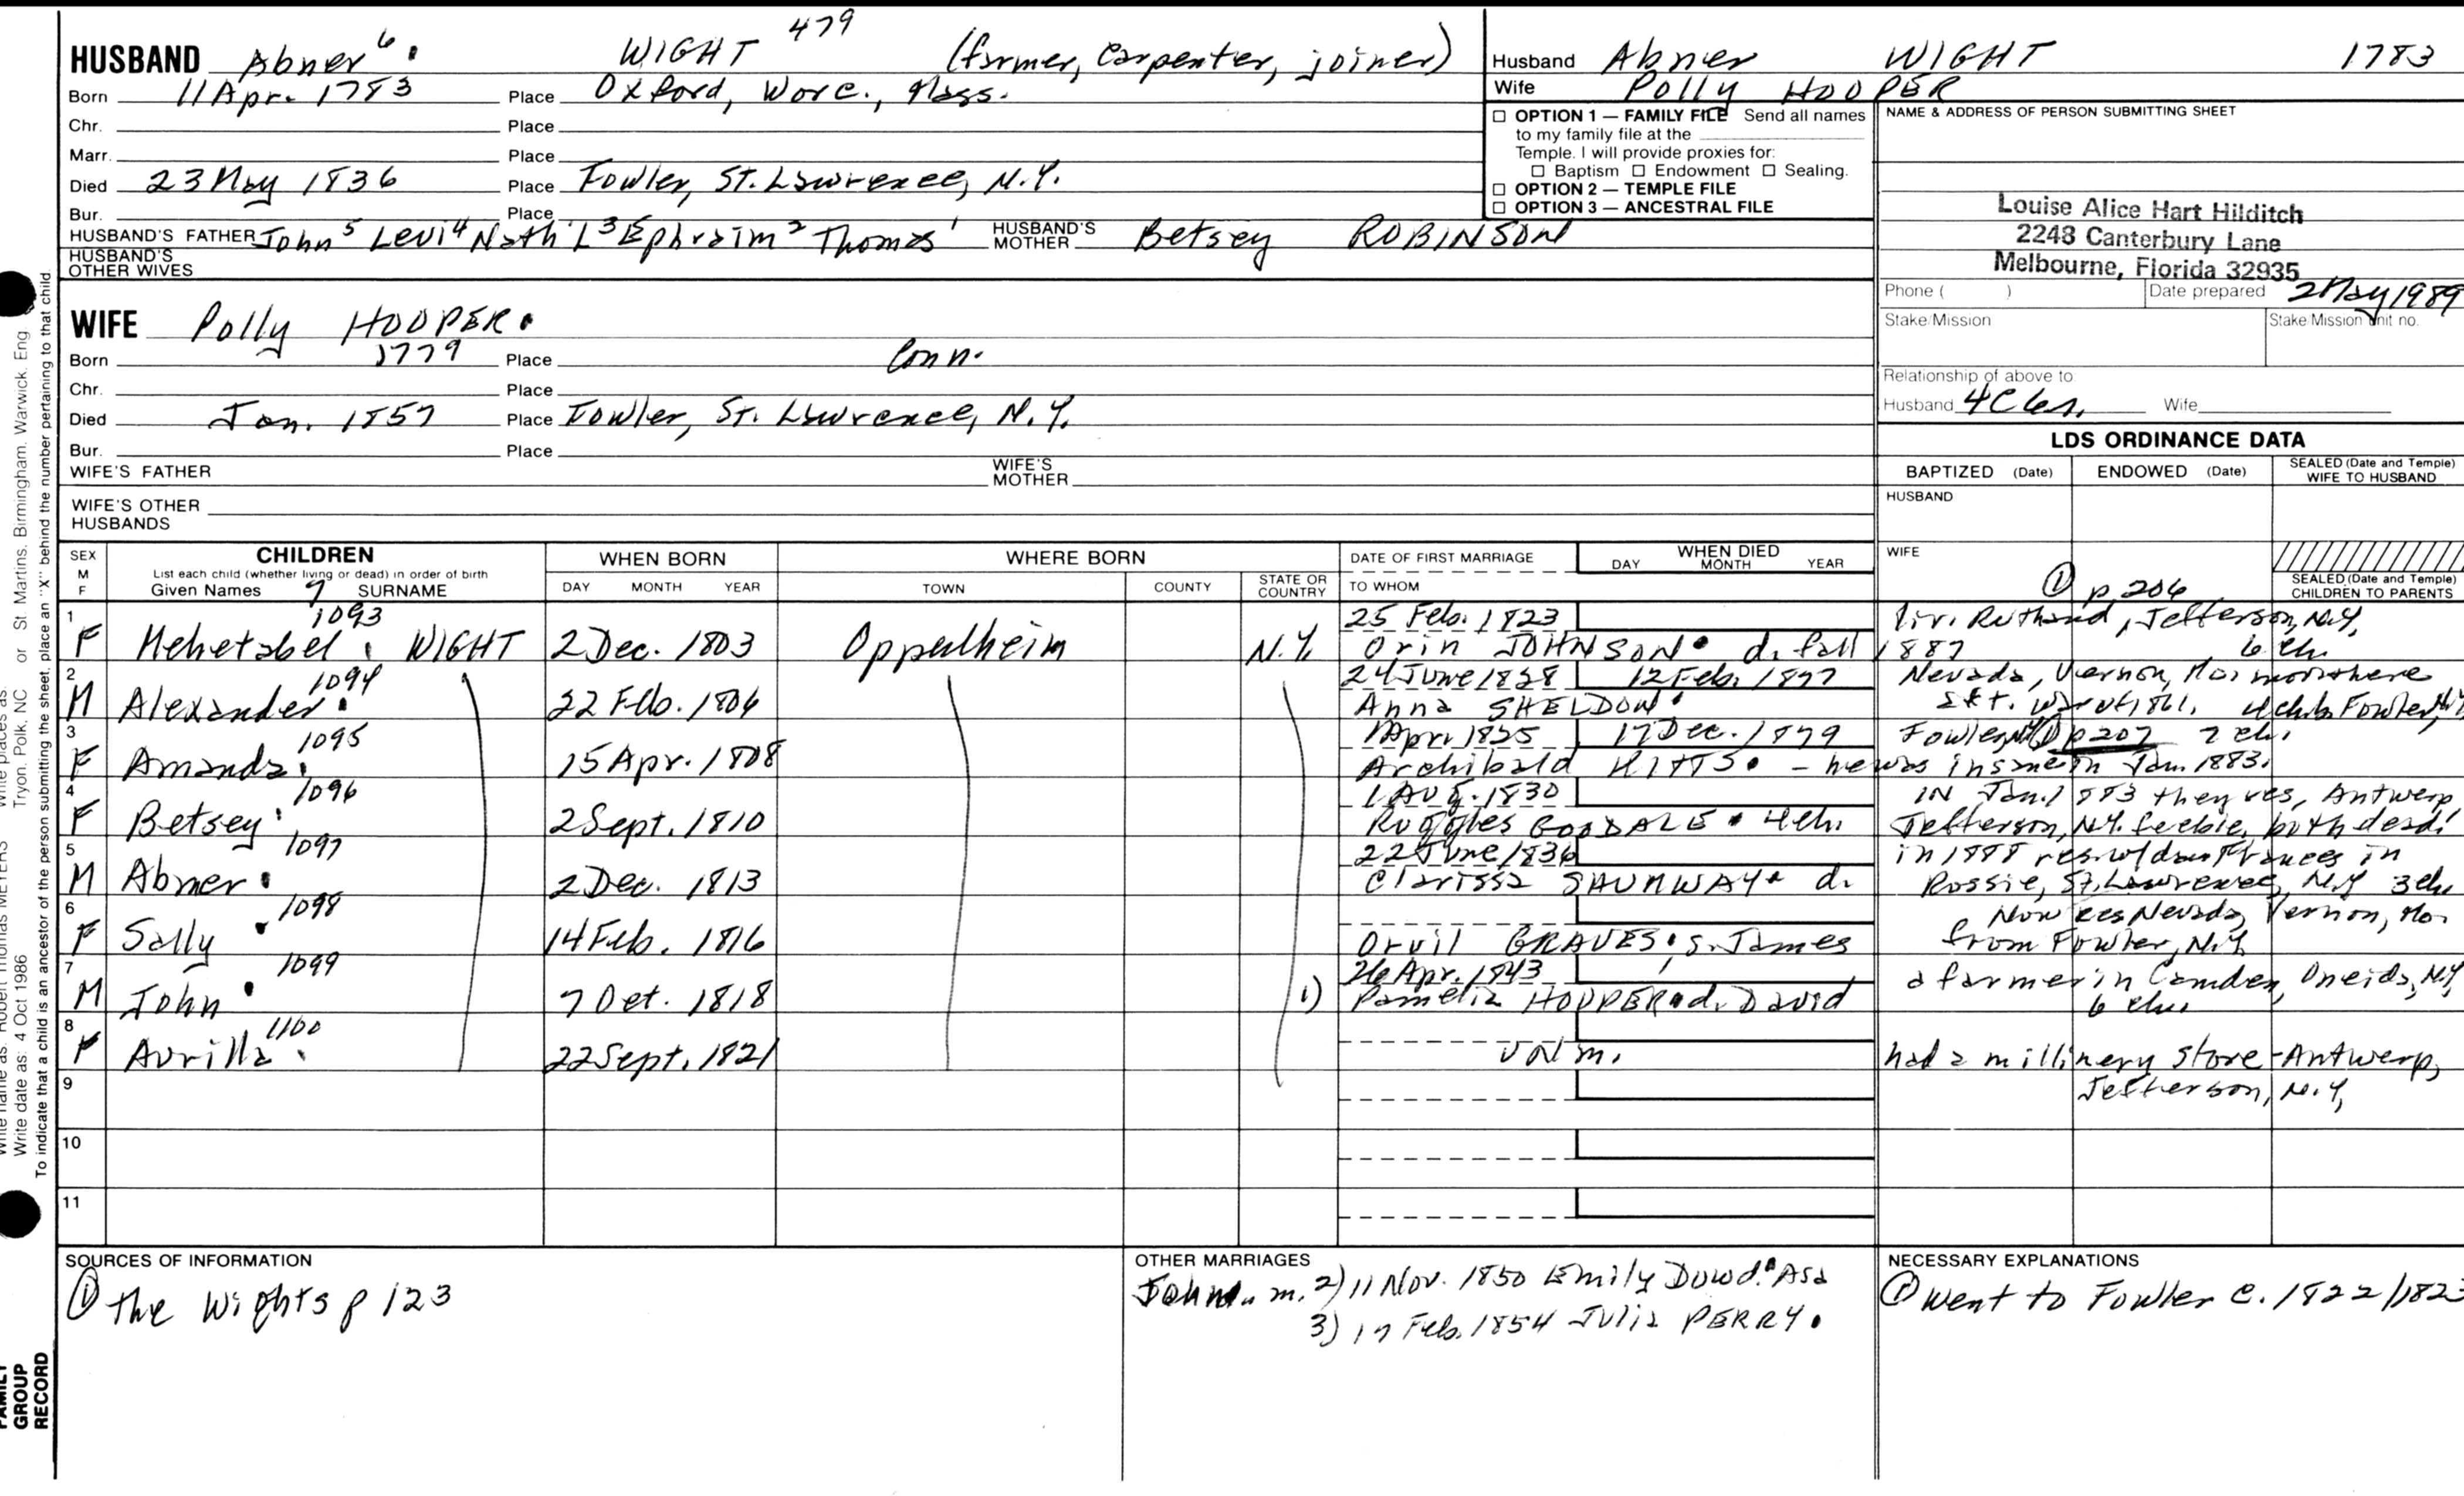 HUSBAND Abner 6. WIGHT 479 (farmer, carpenter, joiner)
Born 11 Apr. 1783 Place Oxford, Worc., Mass.
Chr. Place
Marr. Place
Died 23 May 1836 Place Fowler, St. Lawrence, N.Y.
Bur. Place
HUSBAND'S FATHER John 5 Levi 4 Nath'l 3 Ephraim 2 Thomas 1 HUSBAND'S MOTHER Betsey ROBINSON
HUSBAND'S OTHER WIVES
WIFE Polly HOOPER.
Born 1779 Place Conn.
Chr. Place
Died Jan. 1857 Place Fowler, St. Lawrence, N.Y.
Bur. Place
WIFE'S FATHER WIFE'S MOTHER
WIFE'S OTHER HUSBANDS
Husband Abner WIGHT 1783
Wife Polly HOOPER
☐ OPTION 1 — FAMILY FILE Send all names
to my family file at the
Temple. I will provide proxies for:
☐ Baptism ☐ Endowment ☐ Sealing.
☐ OPTION 2 — TEMPLE FILE
☐ OPTION 3 — ANCESTRAL FILE
NAME & ADDRESS OF PERSON SUBMITTING SHEET
Louise Alice Hart Hilditch
2248 Canterbury Lane
Melbourne, Florida 32935
Phone ( ) Date prepared 2 May 1989
Stake/Mission Stake/Mission unit no.
Relationship of above to
Husband 4C6r. Wife
LDS ORDINANCE DATA
BAPTIZED (Date) ENDOWED (Date) SEALED (Date and Temple) WIFE TO HUSBAND
HUSBAND
WIFE
① p 206
SEALED (Date and Temple) CHILDREN TO PARENTS
SEX M F CHILDREN WHEN BORN WHERE BORN DATE OF FIRST MARRIAGE WHEN DIED
List each child (whether living or dead) in order of birth DAY MONTH YEAR
Given Names 7 SURNAME DAY MONTH YEAR TOWN COUNTY STATE OR COUNTRY TO WHOM
1 1093 25 Feb. 1823 liv. Jefferson, N.Y.
F Mehetabel. WIGHT 2 Dec. 1803 Oppenheim N.Y. Orin JOHNSON. d. fall 1887 6 ch.
2 1094 24 June 1828 12 Feb. 1877 Nevada, Vernon, Mo.
M Alexander. 22 Feb. 1806 Anna SHELDON. War of 1861. 4 ch. b. Fowler, N.Y.
3 1095 Apr. 1825 17 Dec. 1879 Fowler, NY ① p 207 7 ch.
F Amanda. 15 Apr. 1808 Archibald KITTS. - he was insane in Jan. 1883.
4 1096 1 Aug. 1830 IN Jan. 1883 they res. Antwerp,
F Betsey. 2 Sept. 1810 Ruggles GOODALE. 4 ch. Jefferson, N.Y. feeble, both dead.
5 1097 22 June 1836 in 1888 res. w/ dau Frances in
M Abner. 2 Dec. 1813 Clarissa SHUMWAY. d. Rossie, St. Lawrence, N.Y. 3 ch.
6 1098 Now res Nevada, Vernon, Mo.
F Sally. 14 Feb. 1816 Orvil GRAVES. s. James from Fowler, N.Y.
7 1099 26 Apr. 1843 a farmer in Camden, Oneida, N.Y.
M John. 7 Oct. 1818 1) Pamelia HOOPER. d. David 6 ch.
8 1100
F Avrilla. 22 Sept. 1821 UNm. had a millinery store - Antwerp,
Jefferson, N.Y.
9
10
11
SOURCES OF INFORMATION
① the Wights p 123
OTHER MARRIAGES
John. m. 2) 11 Nov. 1850 Emily Dowd. Asa
3) 17 Feb. 1854 Julia PERRY.
NECESSARY EXPLANATIONS
① went to Fowler c. 1822/1823
St. Martins, Birmingham, Warwick, Eng
or Tryon, Polk, NC
Write date as: 4 Oct 1986
To indicate that a child is an ancestor of the person submitting the sheet, place an "X" behind the number pertaining to that child.
FAMILY GROUP RECORD